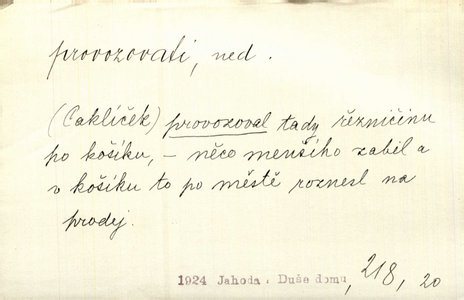 provozovati, ned.
(Caklíček) provozoval tady řezničinu
po košíku, – něco menšího zabil a
v košíku to po městě roznesl na
prodej.
1924 Jahoda: Duše domu, 218, 20